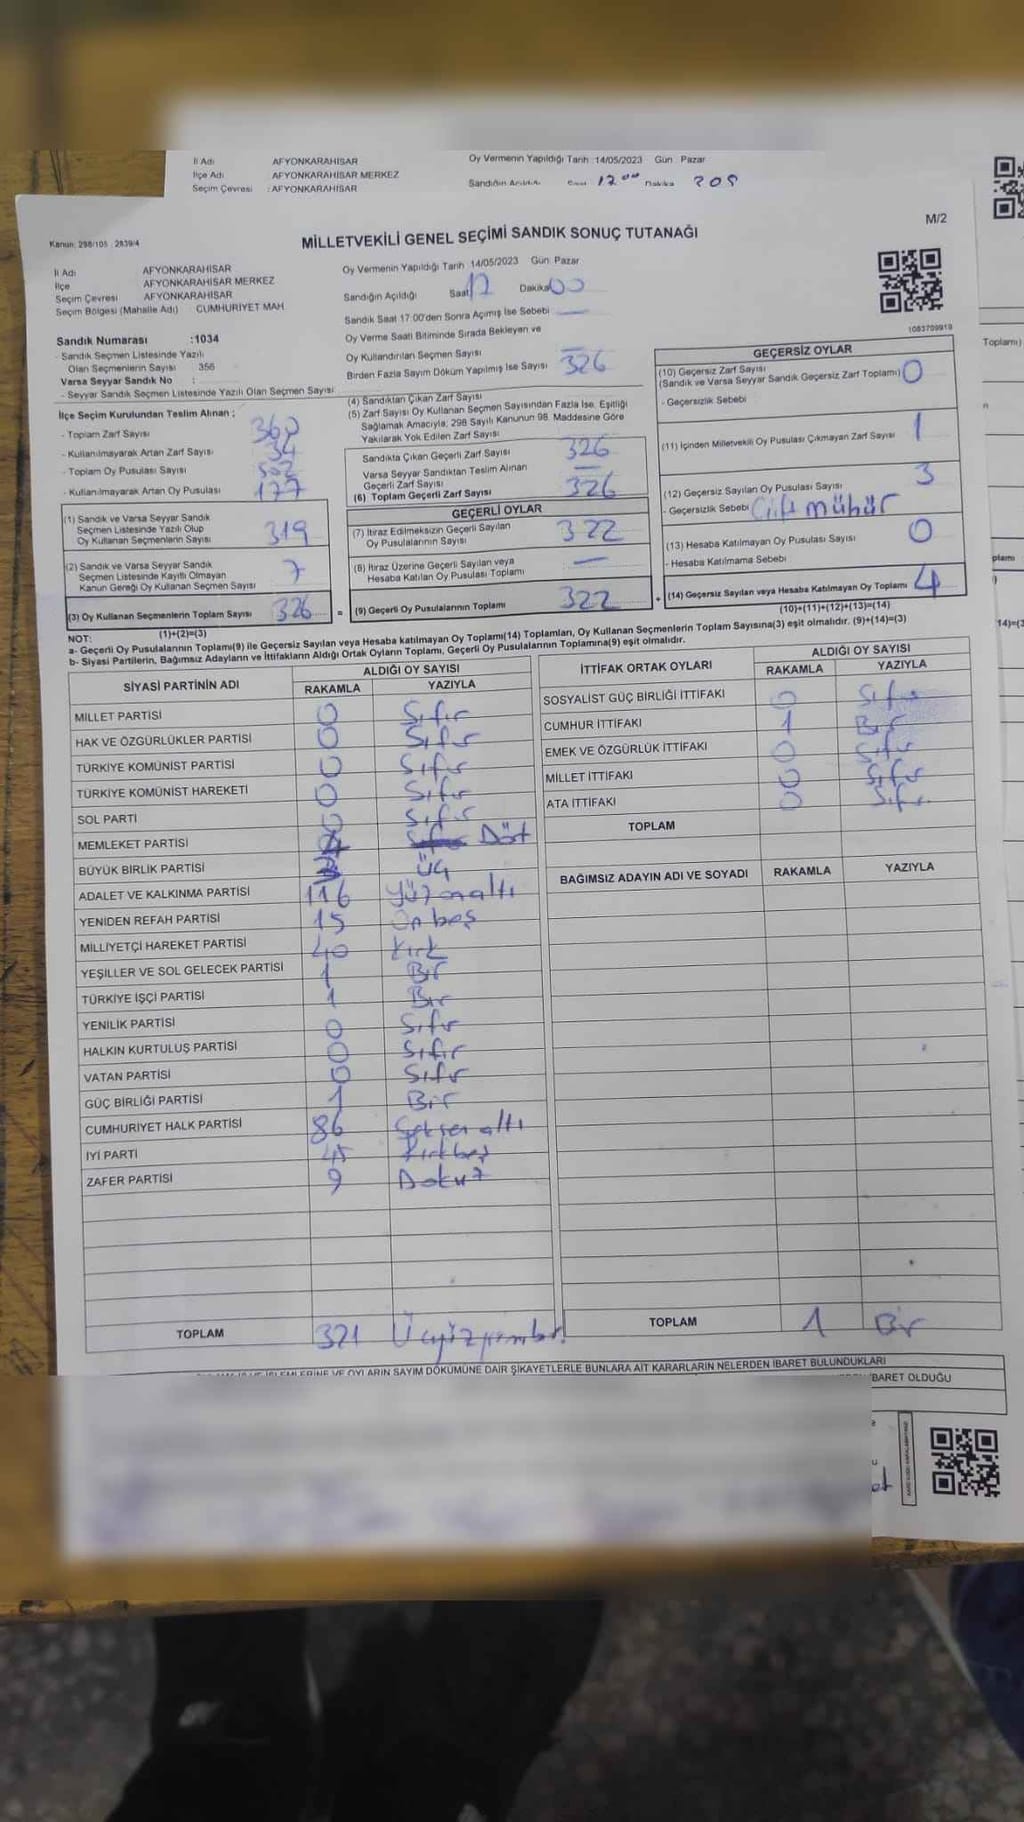 İl Adı AFYONKARAHİSAR
İlçe Adı AFYONKARAHİSAR MERKEZ
Seçim Çevresi : AFYONKARAHİSAR
Oy Vermenin Yapıldığı Tarih 14/05/2023 Gün Pazar
Sandığın Açıldığı Saat 17 00 Dakika
M/2
Kanun: 298/105 , 2839/4
MİLLETVEKİLİ GENEL SEÇİMİ SANDIK SONUÇ TUTANAĞI
İl Adı AFYONKARAHİSAR
İlçe AFYONKARAHİSAR MERKEZ
Seçim Çevresi AFYONKARAHİSAR
Seçim Bölgesi (Mahalle Adı) CUMHURİYET MAH
Sandık Numarası :1034
- Sandık Seçmen Listesinde Yazılı
Olan Seçmenlerin Sayısı 356
Varsa Seyyar Sandık No :
- Seyyar Sandık Seçmen Listesinde Yazılı Olan Seçmen Sayısı
İlçe Seçim Kurulundan Teslim Alınan ;
- Toplam Zarf Sayısı 360
- Kullanılmayarak Artan Zarf Sayısı 34
- Toplam Oy Pusulası Sayısı
- Kullanılmayarak Artan Oy Pusulası 177
(1) Sandık ve Varsa Seyyar Sandık
Seçmen Listesinde Yazılı Olup
Oy Kullanan Seçmenlerin Sayısı 319
(2) Sandık ve Varsa Seyyar Sandık
Seçmen Listesinde Kayıtlı Olmayan
Kanun Gereği Oy Kullanan Seçmen Sayısı 7
(3) Oy Kullanan Seçmenlerin Toplam Sayısı 326
(1)+(2)=(3)
Oy Vermenin Yapıldığı Tarih 14/05/2023 Gün Pazar
Sandığın Açıldığı Saat 17 Dakika 00
Sandık Saat 17:00'den Sonra Açımış İse Sebebi —
Oy Verme Saati Bitiminde Sırada Bekleyen ve
Oy Kullandırılan Seçmen Sayısı —
Birden Fazla Sayım Döküm Yapılmış İse Sayısı
(4) Sandıktan Çıkan Zarf Sayısı 326
(5) Zarf Sayısı Oy Kullanan Seçmen Sayısından Fazla İse, Eşitliği
Sağlamak Amacıyla, 298 Sayılı Kanunun 98. Maddesine Göre
Yakılarak Yok Edilen Zarf Sayısı
Sandıkta Çıkan Geçerli Zarf Sayısı 326
Varsa Seyyar Sandıktan Teslim Alınan
Geçerli Zarf Sayısı —
(6) Toplam Geçerli Zarf Sayısı 326
GEÇERLİ OYLAR
(7) İtiraz Edilmeksizin Geçerli Sayılan
Oy Pusulalarının Sayısı 322
(8) İtiraz Üzerine Geçerli Sayılan veya
Hesaba Katılan Oy Pusulası Toplamı —
= (9) Geçerli Oy Pusulalarının Toplamı 322 +
1083709919
GEÇERSİZ OYLAR
(10) Geçersiz Zarf Sayısı
(Sandık ve Varsa Seyyar Sandık Geçersiz Zarf Toplamı) 0
- Geçersizlik Sebebi
(11) İçinden Milletvekili Oy Pusulası Çıkmayan Zarf Sayısı 1
(12) Geçersiz Sayılan Oy Pusulası Sayısı 3
- Geçersizlik Sebebi Çift mühür
(13) Hesaba Katılmayan Oy Pusulası Sayısı 0
- Hesaba Katılmama Sebebi
(14) Geçersiz Sayılan veya Hesaba Katılmayan Oy Toplamı 4
(10)+(11)+(12)+(13)=(14)
NOT:
a- Geçerli Oy Pusulalarının Toplamı(9) ile Geçersiz Sayılan veya Hesaba katılmayan Oy Toplamı(14) Toplamları, Oy Kullanan Seçmenlerin Toplam Sayısına(3) eşit olmalıdır. (9)+(14)=(3)
b- Siyasi Partilerin, Bağımsız Adayların ve İttifakların Aldığı Ortak Oyların Toplamı, Geçerli Oy Pusulalarının Toplamına(9) eşit olmalıdır.
SİYASİ PARTİNİN ADI ALDIĞI OY SAYISI
RAKAMLA YAZIYLA
MİLLET PARTİSİ 0 Sıfır
HAK VE ÖZGÜRLÜKLER PARTİSİ 0 Sıfır
TÜRKİYE KOMÜNİST PARTİSİ 0 Sıfır
TÜRKİYE KOMÜNİST HAREKETİ 0 Sıfır
SOL PARTİ 0 Sıfır
MEMLEKET PARTİSİ 4 Dört
BÜYÜK BİRLİK PARTİSİ 3 Üç
ADALET VE KALKINMA PARTİSİ 116 Yüzonaltı
YENİDEN REFAH PARTİSİ 15 Onbeş
MİLLİYETÇİ HAREKET PARTİSİ 40 Kırk
YEŞİLLER VE SOL GELECEK PARTİSİ 1 Bir
TÜRKİYE İŞÇİ PARTİSİ 1 Bir
YENİLİK PARTİSİ 0 Sıfır
HALKIN KURTULUŞ PARTİSİ 0 Sıfır
VATAN PARTİSİ 0 Sıfır
GÜÇ BİRLİĞİ PARTİSİ 1 Bir
CUMHURİYET HALK PARTİSİ 86 Seksen altı
İYİ PARTİ 45 Kırkbeş
ZAFER PARTİSİ 9 Dokuz
TOPLAM 321
İTTİFAK ORTAK OYLARI ALDIĞI OY SAYISI
RAKAMLA YAZIYLA
SOSYALİST GÜÇ BİRLİĞİ İTTİFAKI 0 Sıfır
CUMHUR İTTİFAKI 1 Bir
EMEK VE ÖZGÜRLÜK İTTİFAKI 0 Sıfır
MİLLET İTTİFAKI 0 Sıfır
ATA İTTİFAKI 0 Sıfır
TOPLAM
BAĞIMSIZ ADAYIN ADI VE SOYADI RAKAMLA YAZIYLA
TOPLAM 1 Bir
OYLARIN SAYIM DÖKÜMÜNE DAİR ŞİKAYETLERLE BUNLARA AİT KARARLARIN NELERDEN İBARET BULUNDUKLARI
İBARET OLDUĞU